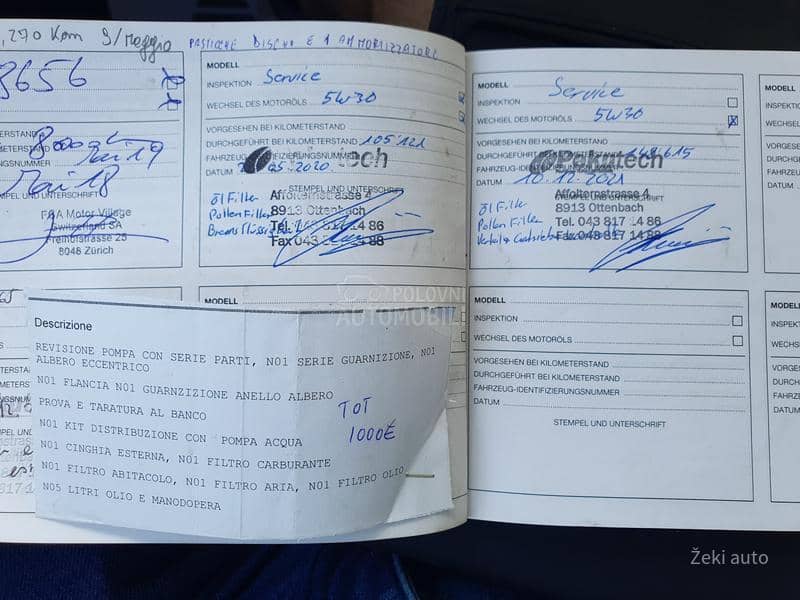 ,270 Km 9/Maggio PASTICHE DISCHO E 1 AMMORTIZZATORE
3656
80
Mai 19
Mai 18
STEMPEL UND UNTERSCHRIFT
FGA Motor Village
Switzerland SA
Freihofstrasse 25
8048 Zürich
MODELL
INSPEKTION Service
WECHSEL DES MOTORÖLS 5W30
VORGESEHEN BEI KILOMETERSTAND
DURCHGEFÜHRT BEI KILOMETERSTAND 105'121
DATUM 05.2020
STEMPEL UND UNTERSCHRIFT
Affolternstrasse 4
8913 Ottenbach
Tel. 043 817 14 86
Fax 043 817 14 88
Öl Filter
Pollen Filter
Bremsflüssig
MODELL
INSPEKTION Service
WECHSEL DES MOTORÖLS 5W30
VORGESEHEN BEI KILOMETERSTAND
DURCHGEFÜHRT BEI KILOMETERSTAND 148'615
FAHRZEUG-IDENTIFIZIERUNGSNUMMER
DATUM 10.12.2021
Affolternstrasse 4
STEMPEL UND UNTERSCHRIFT
8913 Ottenbach
Tel. 043 817 14 86
Fax 043 817 14 88
Öl Filter
Pollen Filter
MODELL
INSPEKTION
WECHSEL
VORGESEHEN
DURCHGEFÜH
FAHRZEUG-ID
DATUM
MODELL
Descrizione
REVISIONE POMPA CON SERIE PARTI, N01 SERIE GUARNIZIONE, N01
ALBERO ECCENTRICO
N01 FLANCIA N01 GUARNZIZIONE ANELLO ALBERO
PROVA E TARATURA AL BANCO
N01 KIT DISTRIBUZIONE CON POMPA ACQUA
N01 CINGHIA ESTERNA, N01 FILTRO CARBURANTE
N01 FILTRO ABITACOLO, N01 FILTRO ARIA, N01 FILTRO OLIO
N05 LITRI OLIO E MANODOPERA
TOT
1000€
MODELL
INSPEKTION
WECHSEL DES MOTORÖLS
VORGESEHEN BEI KILOMETERSTAND
DURCHGEFÜHRT BEI KILOMETERSTAND
FAHRZEUG-IDENTIFIZIERUNGSNUMMER
DATUM
STEMPEL UND UNTERSCHRIFT
MODELL
INSPEKTIO
WECHSEL
VORGESEH
DURCHGEF
FAHRZEUG
DATUM
POLOVNI
AUTOMOBILI
Žeki auto